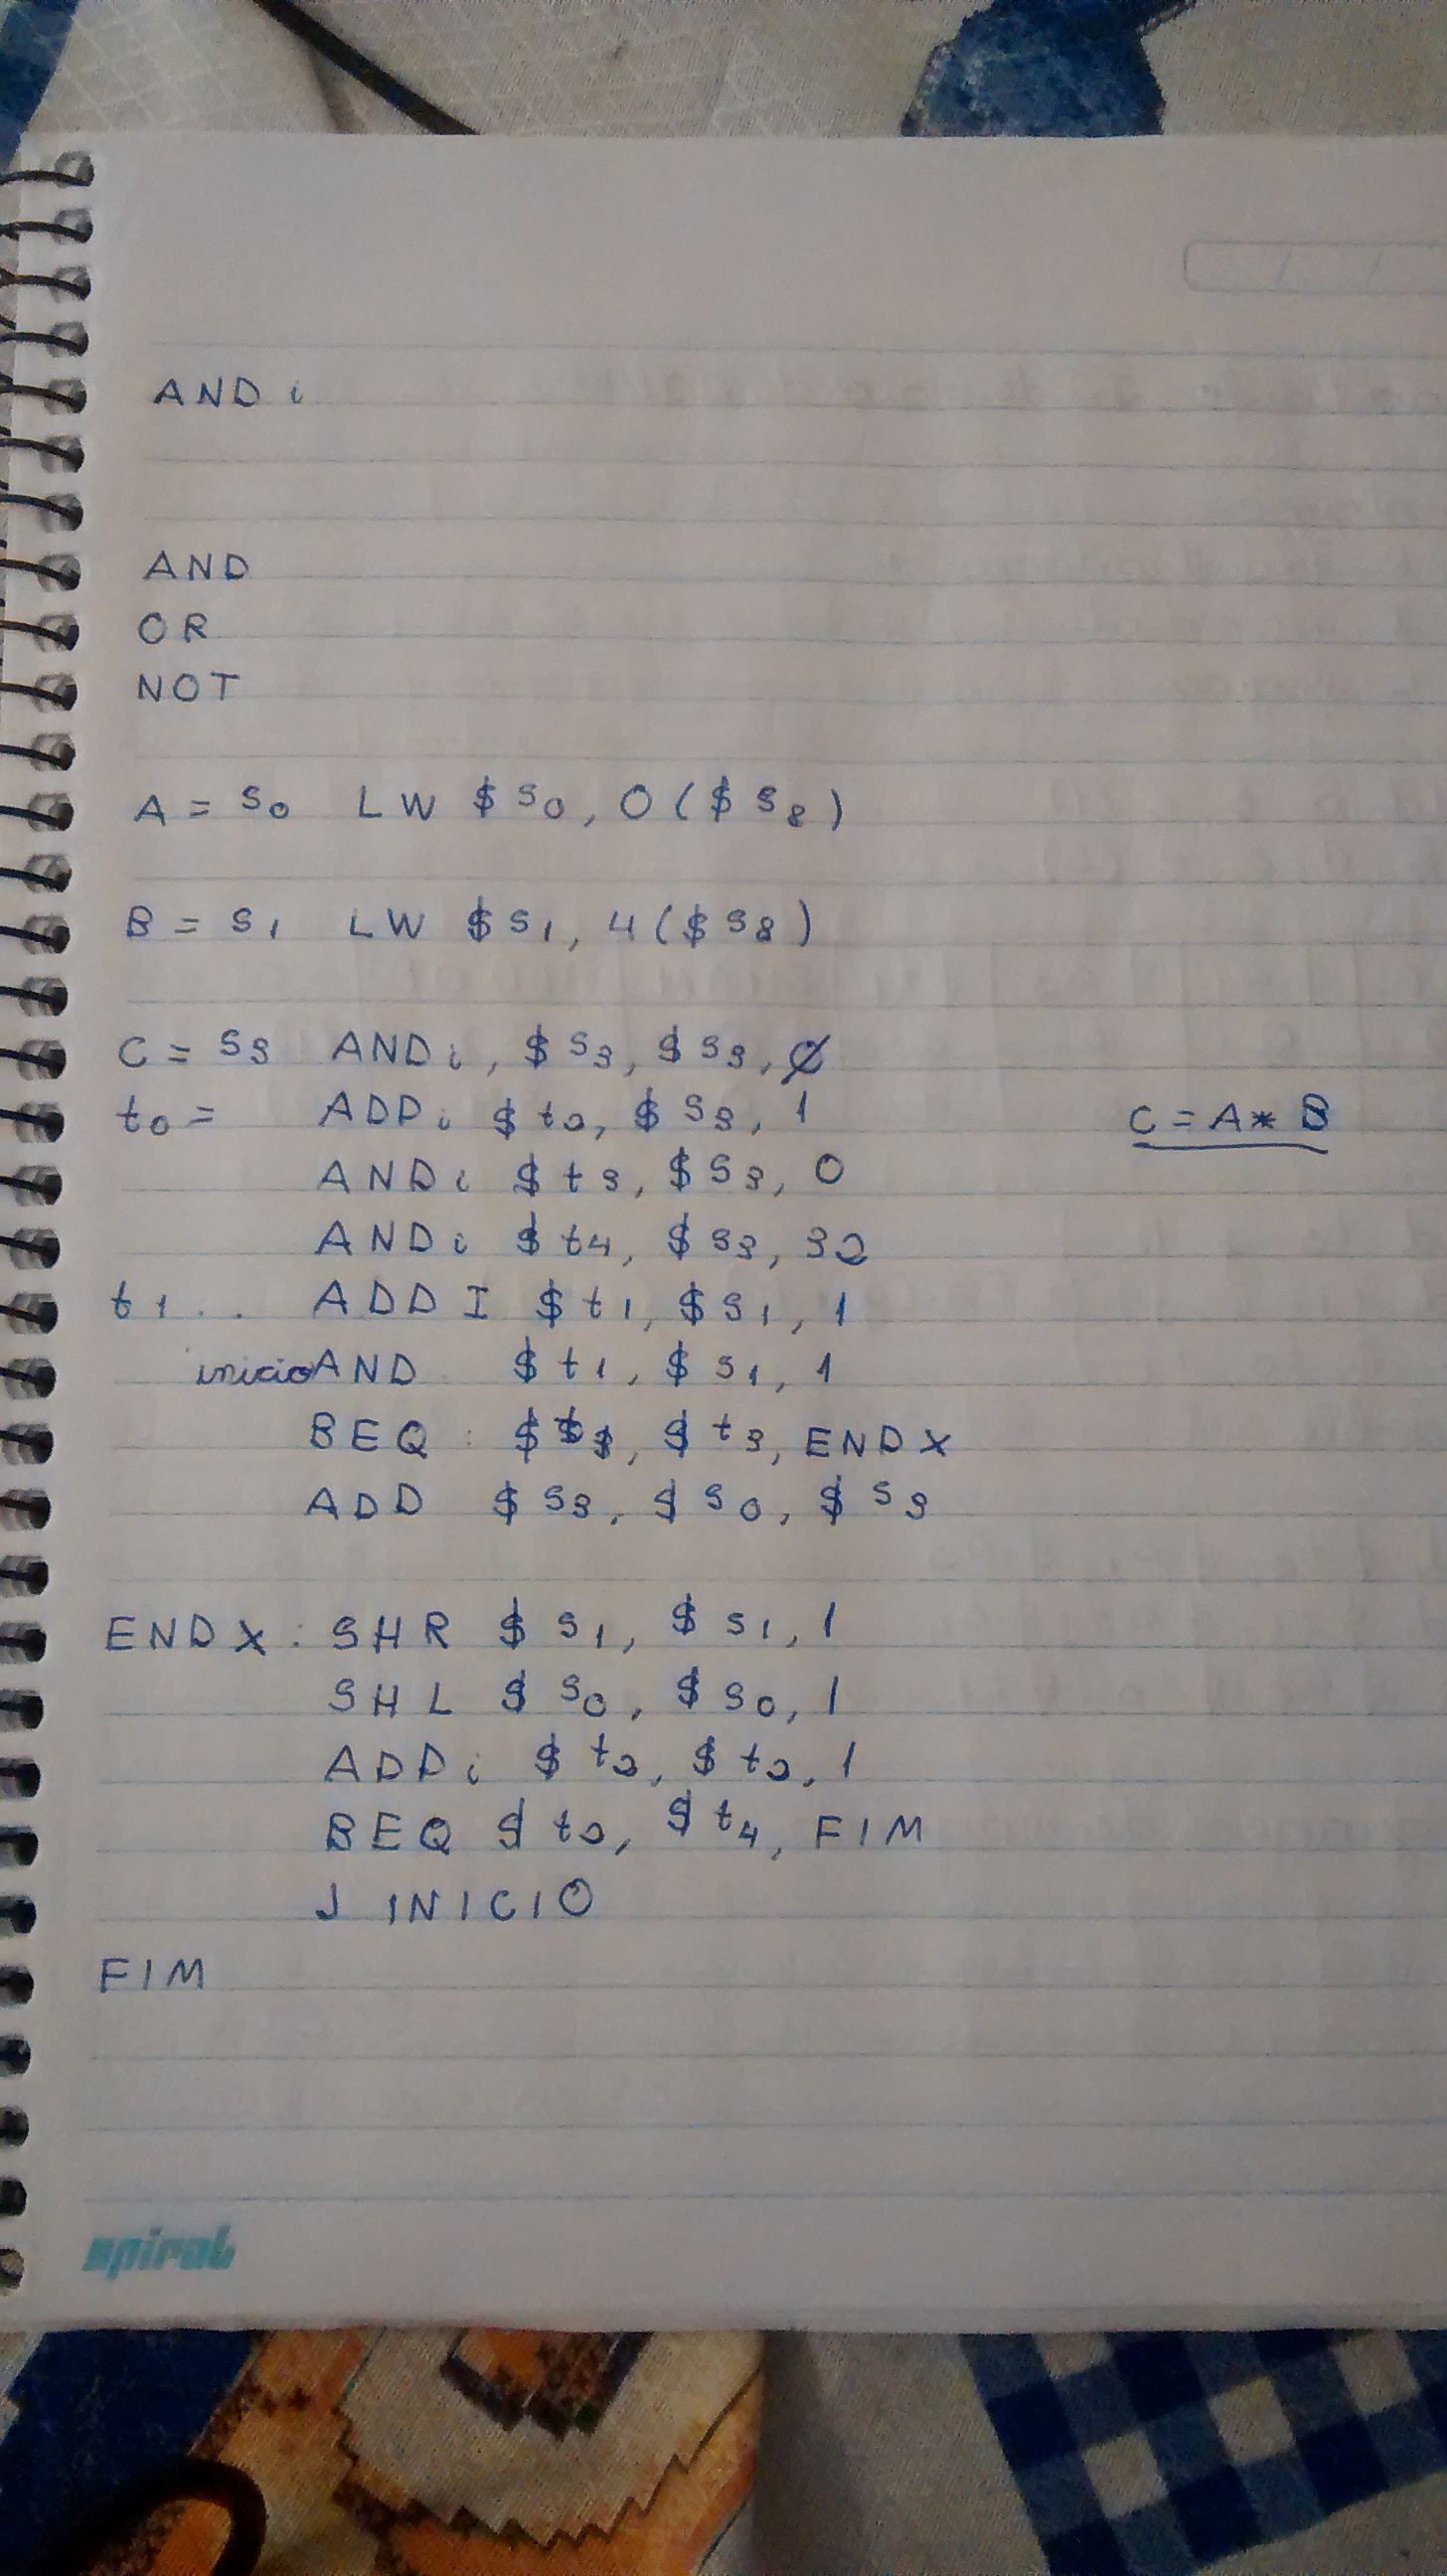 AND i
AND
OR
NOT
A = S0 LW $ S0, 0 ( $ S8 )
B = S1 LW $ S1, 4 ( $ S8 )
C = S3 ANDi, $ S3, $ S3, Ø
t0 = ADDi $ t2, $ S3, 1
C = A * B
ANDi $ t3, $ S3, 0
ANDi $ t4, $ S3, 32
t1 . . ADD I $ t1, $ S1, 1
inicio AND $ t1, $ S1, 1
BEQ : $ , $ t3, END X
ADD $ S3, $ S0, $ S3
END X : SHR $ S1, $ S1, 1
SHL $ S0, $ S0, 1
ADDi $ t2, $ t2, 1
BEQ $ t2, $ t4, FIM
J INICIO
FIM
spiral